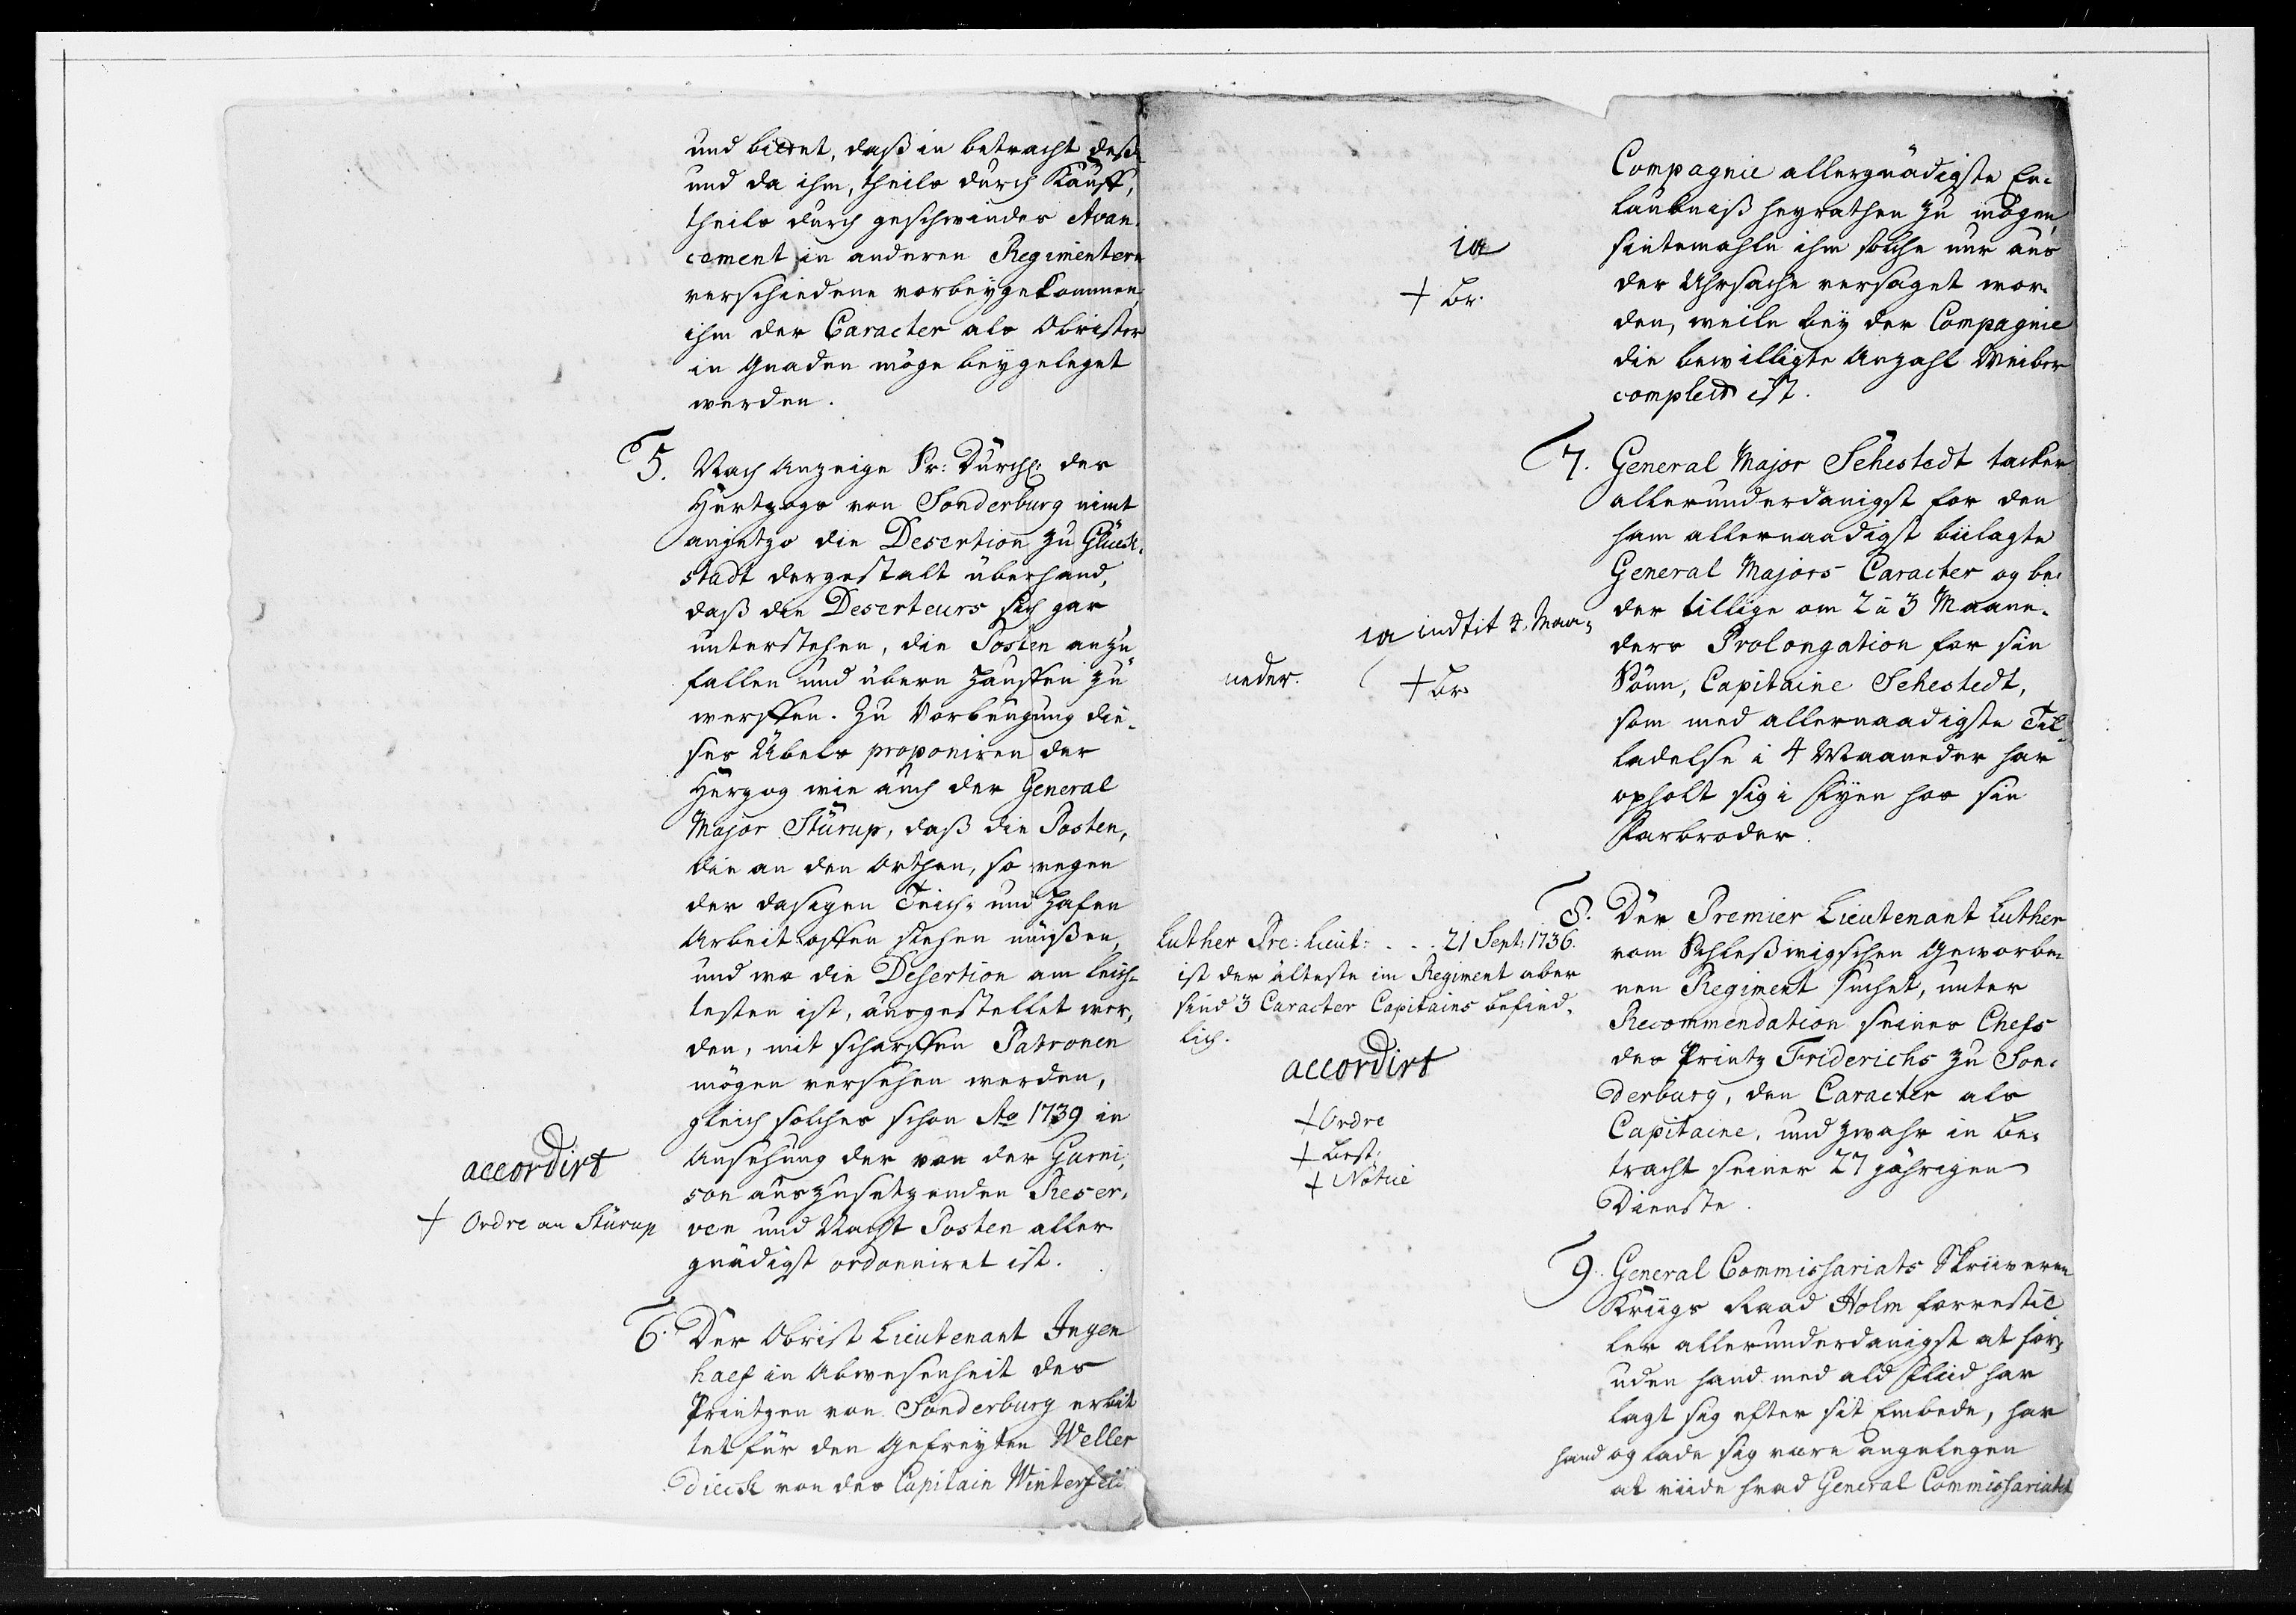 und bittet, daß in betracht deß
und da ihm, theils durch Kauff,
theils durch geschwindes Avan-
cement in anderen Regimentern
verschiedene vorbeygekommen,
ihm der Caracter als Obrister
in Gnaden möge beygeleget
werden.
5. Nach Anzeige Sr: Durchl: des
Hertzogs von Sonderburg nimt
anjetzo die Desertion zu Glück-
stadt dergestalt überhand,
daß die Deserteurs sich gar
unterstehen, die Posten anzu
fallen und übern Hauffen zu
werffen. Zu Vorbeugung die-
ses Übels proponiren der
Hertzog wie auch der General
Major Stürup, daß die Posten,
die an den Orthen, so wegen
der dasigen Teich- und Hafen
Arbeit offen stehen müßen,
und wo die Desertion am leich-
testen ist, ausgestellet wer-
den, mit scharffen Patronen
mögen versehen werden,
gleich solches schon Ao 1739 in
Ansehung der von der Garni-
son auszusetzenden Reser-
ven und Nacht Posten aller
gnädigst ordonniret ist.
accordirt
+ Ordre an Stürup
6. Der Obrist Lieutenant Ingen
haef in Abwesenheit des
Printzen von Sonderburg erbit
tet für den Gefreyten Weller
dieck von des Capitain Winterfeld
Compagnie allergnädigste Er-
laubniß heyrathen zu mögen,
sintemahlen ihm solche nur aus
der Uhrsache versaget wor-
den, weile bey der Compagnie
die bewilligte Anzahl Weiber
complet ist.
ia
+ Br.
7. General Major Sehestedt takker
allerunderdanigst for den
ham allernaadigst biilagte
General Majors Caracter og be-
der tillige om 2 à 3 Maane-
ders Prolongation for sin
Sönn, Capitaine Sehestedt,
som med allernaadigste Til-
ladelse i 4 Maaneder har
opholt sig i Fyen hos sin
Farbroder.
ia indtil 4. Maa-
neder.
+ Br.
8. Der Premier Lieutenant Luther
vom Schleßwigschen Geworbe-
nen Regiment suchet, unter
Recommendation seines Chefs
des Printz Friderichs zu Son-
derburg, den Caracter als
Capitaine, und zwahr in Be-
tracht seiner 27 jährigen
Dienste.
Luther Pre: Lieut: . . . 21 Sept: 1736.
ist der älteste im Regiment aber
sind 3 Caracter Capitains befind-
lich.
accordirt
+ Ordre
+ Best:
+ Notice
9. General Commissariats Skriiveren
Kriigs Raad Holm forrestil
ler allerunderdanigst at for-
uden hand med ald Fliid har
lagt sig efter sit Embede, har
hand og lade sig være angelegen
at viide hvad General Commissariatet